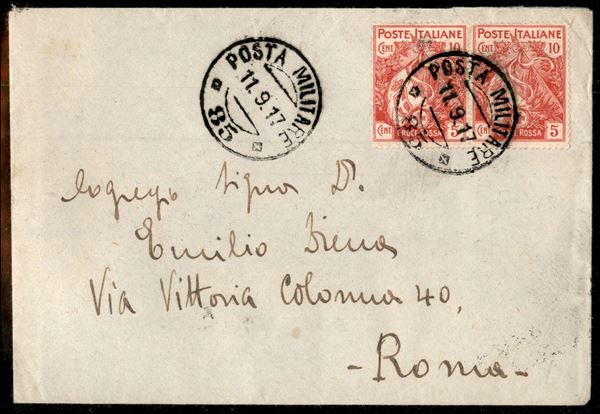 POSTE ITALIANE POSTE ITALIANE
CENT. 10 CENT. 10
CENT CROCE ROSSA 5 ROSSA 5
POSTA MILITARE
11.9.17
85
POSTA MILITARE
11.9.17
85
Signor D.
Emilio Diena
Via Vittoria Colonna 40,
- Roma -